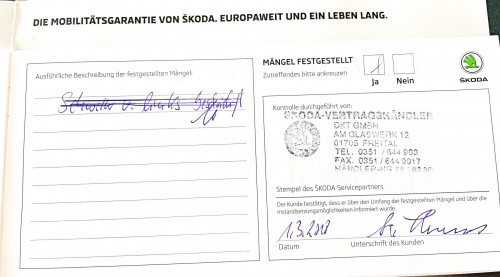 DIE MOBILITÄTSGARANTIE VON ŠKODA. EUROPAWEIT UND EIN LEBEN LANG.
Ausführliche Beschreibung der festgestellten Mängel:
v. links
MÄNGEL FESTGESTELLT
Zutreffendes bitte ankreuzen
Ja
Nein
ŠKODA
Kontrolle durchgeführt von:
ŠKODA-VERTRAGSHÄNDLER
DKT GMBH
AM GLASWERK 12
01705 FREITAL
TEL. 0351 / 644 900
FAX. 0351 / 644 9017
HÄNDLER-NR
Stempel des ŠKODA Servicepartners
Der Kunde bestätigt, dass er über den Umfang der festgestellten Mängel und über die
Instandsetzungsmöglichkeiten informiert wurde.
1.3.2018
Datum
Unterschrift des Kunden